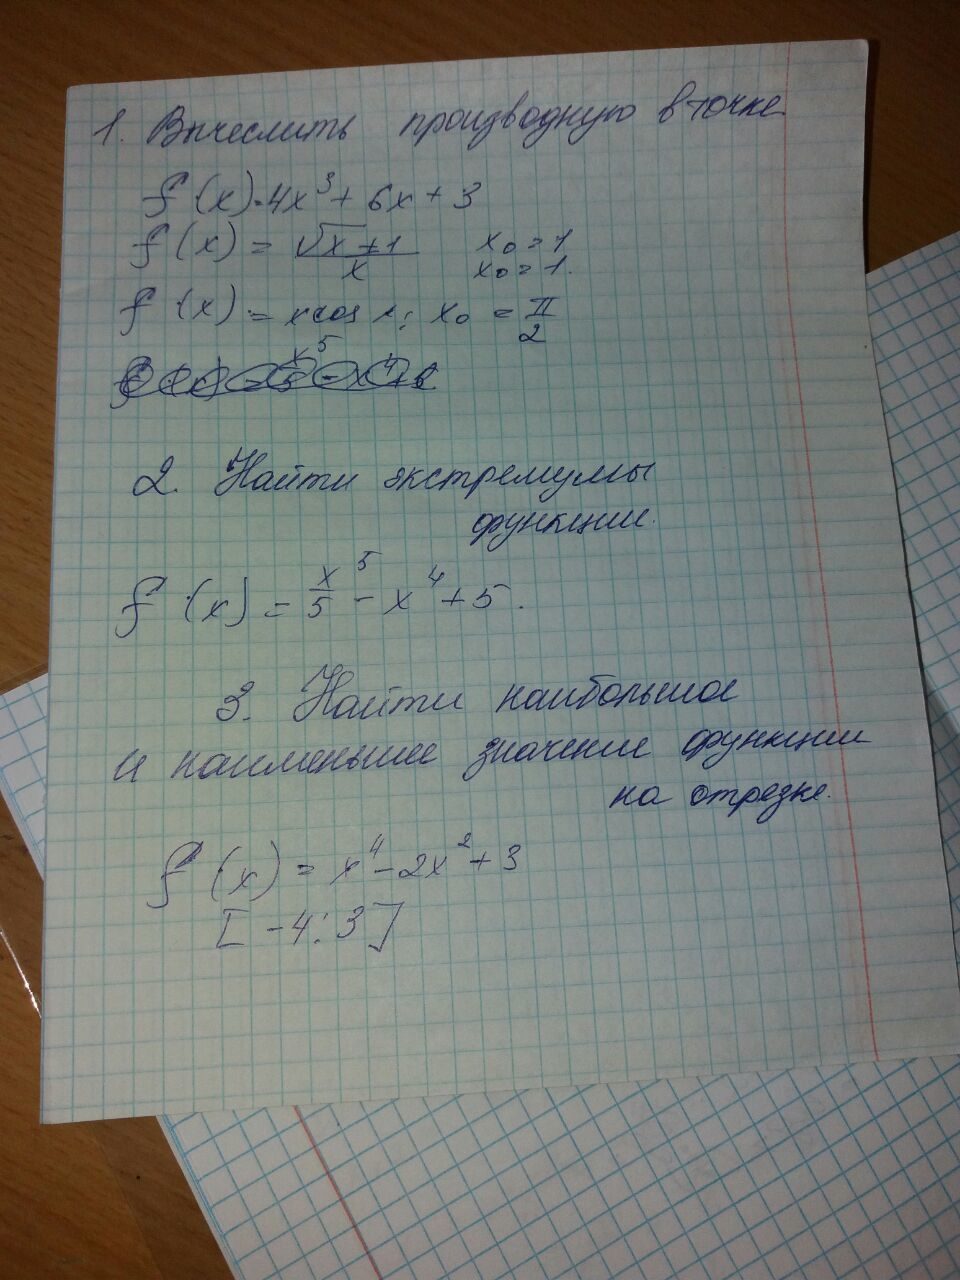 1. Вычеслить производную в точке
f (x) = 4x³ + 6x + 3
f (x) = √x+1 / x    x₀ = 1
x₀ = 1.
f (x) = x cos x; x₀ = π/2
2. Найти экстремумы
функции.
f (x) = x⁵/5 - x⁴ + 5.
3. Найти наибольшое
и наименьшее значение функции
на отрезке.
f (x) = x⁴ - 2x² + 3
[-4; 3]